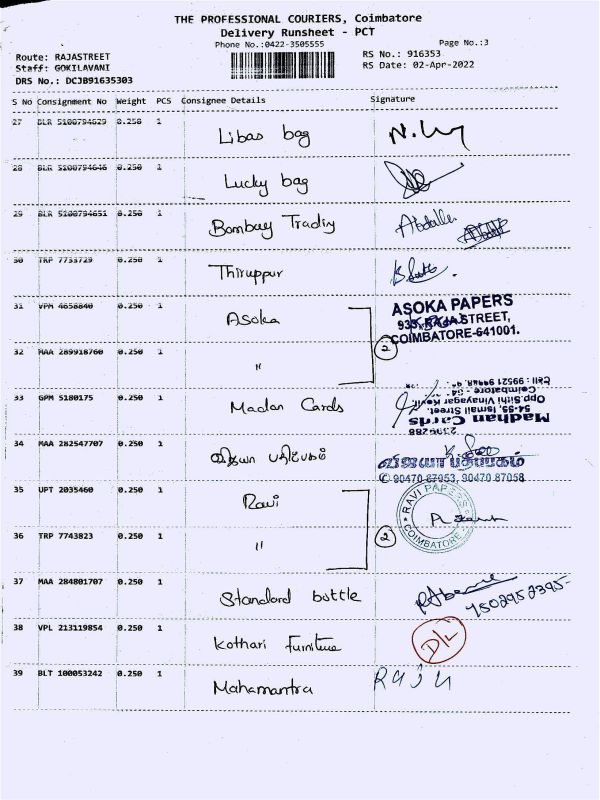 THE PROFESSIONAL COURIERS, Coimbatore
Delivery Runsheet - PCT
Phone No.:0422-3505555
Page No.:3
Route: RAJASTREET
Staff: GOKILAVANI
DRS No.: DCJB91635303
RS No.: 916353
RS Date: 02-Apr-2022
S No Consignment No Weight PCS Consignee Details Signature
27 BLR 5100794629 0.250 1 Libas bag
28 BLR 5100794646 0.250 1 Lucky bag
29 BLR 5100794651 0.250 1 Bombay Trading
30 TRP 7733729 0.250 1 Thiruppur
31 VPM 4658840 0.250 1 Asoka
ASOKA PAPERS
935, RAJA STREET,
COIMBATORE-641001.
32 MAA 289918760 0.250 1 " 2
33 GPM 5180175 0.250 1 Madan Cards
Madhan Cards
54-55, Ismail Street,
Opp.Sithi Vinayagar Kovil,
34 MAA 282547707 0.250 1 வித்யா பதிப்பகம்
90470 87053, 90470 87058
35 UPT 2035460 0.250 1 Ravi
RAVI PAPERS
COIMBATORE
36 TRP 7743823 0.250 1 " 2
37 MAA 284801707 0.250 1 Standard bottle
7502952395
38 VPL 213119854 0.250 1 Kothari furniture D/L
39 BLT 100053242 0.250 1 Mahamantra Raju